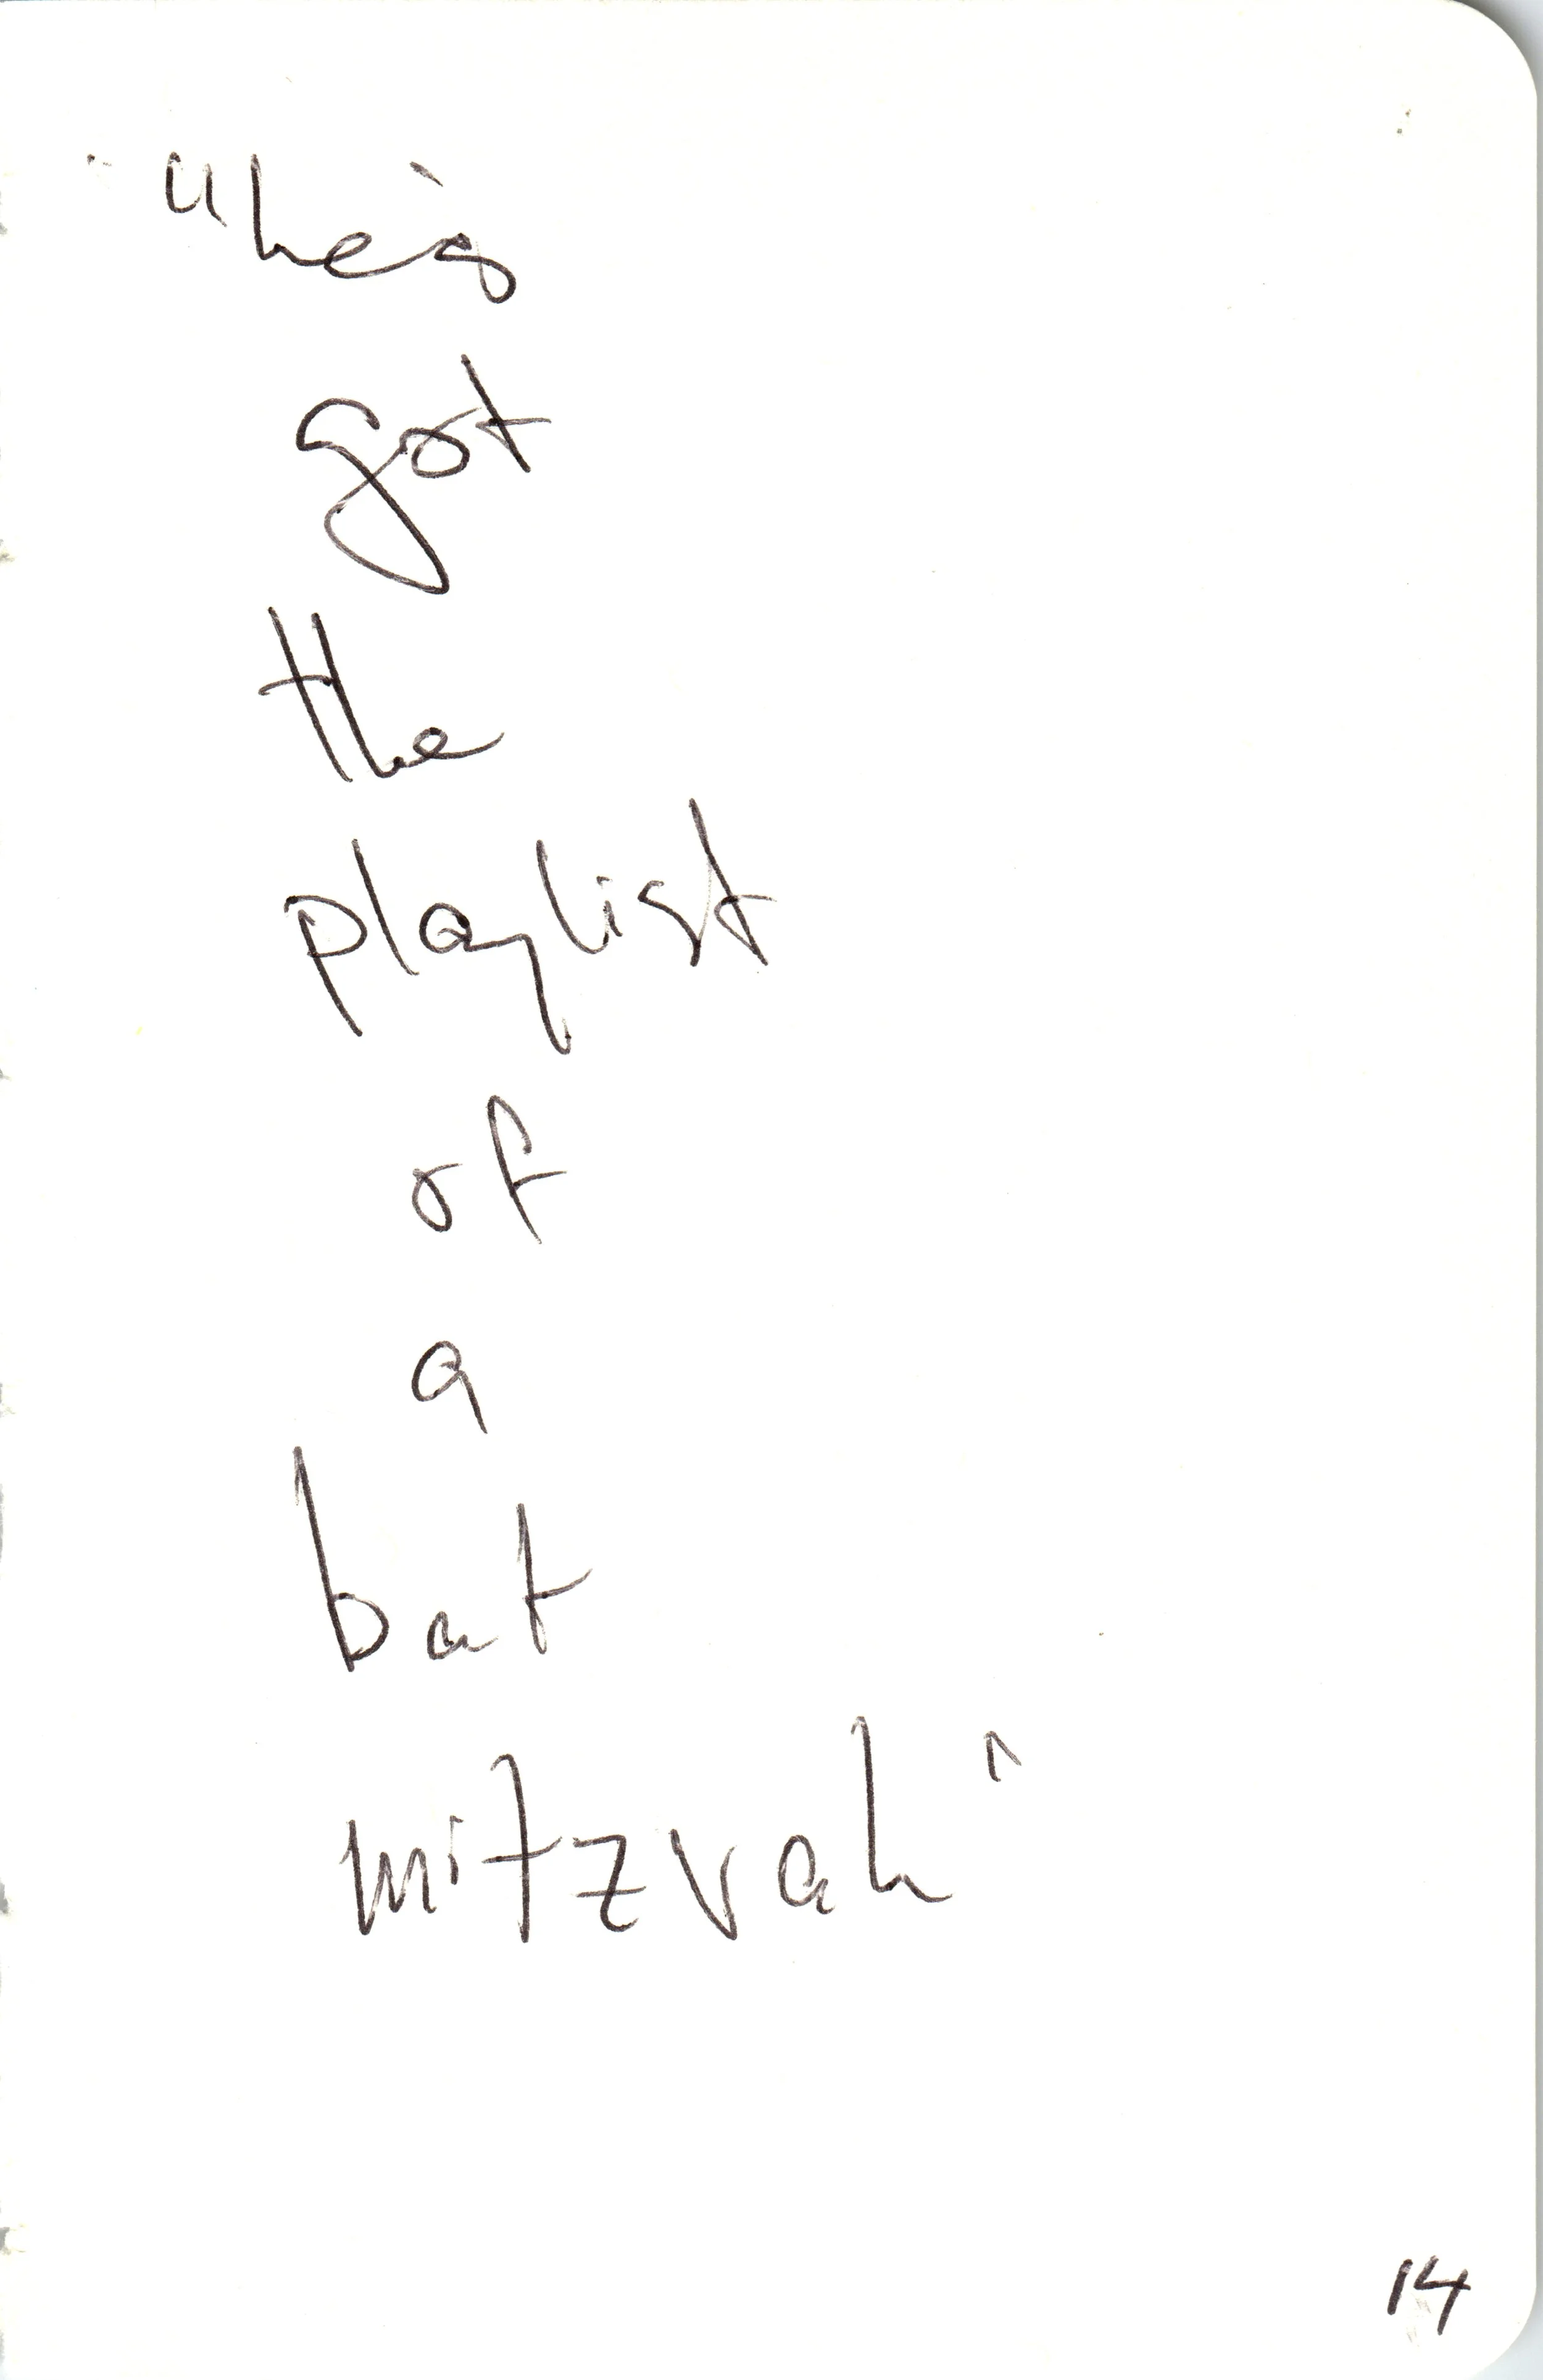 "he's
got
the
playlist
of
a
bat
mitzvah"
14